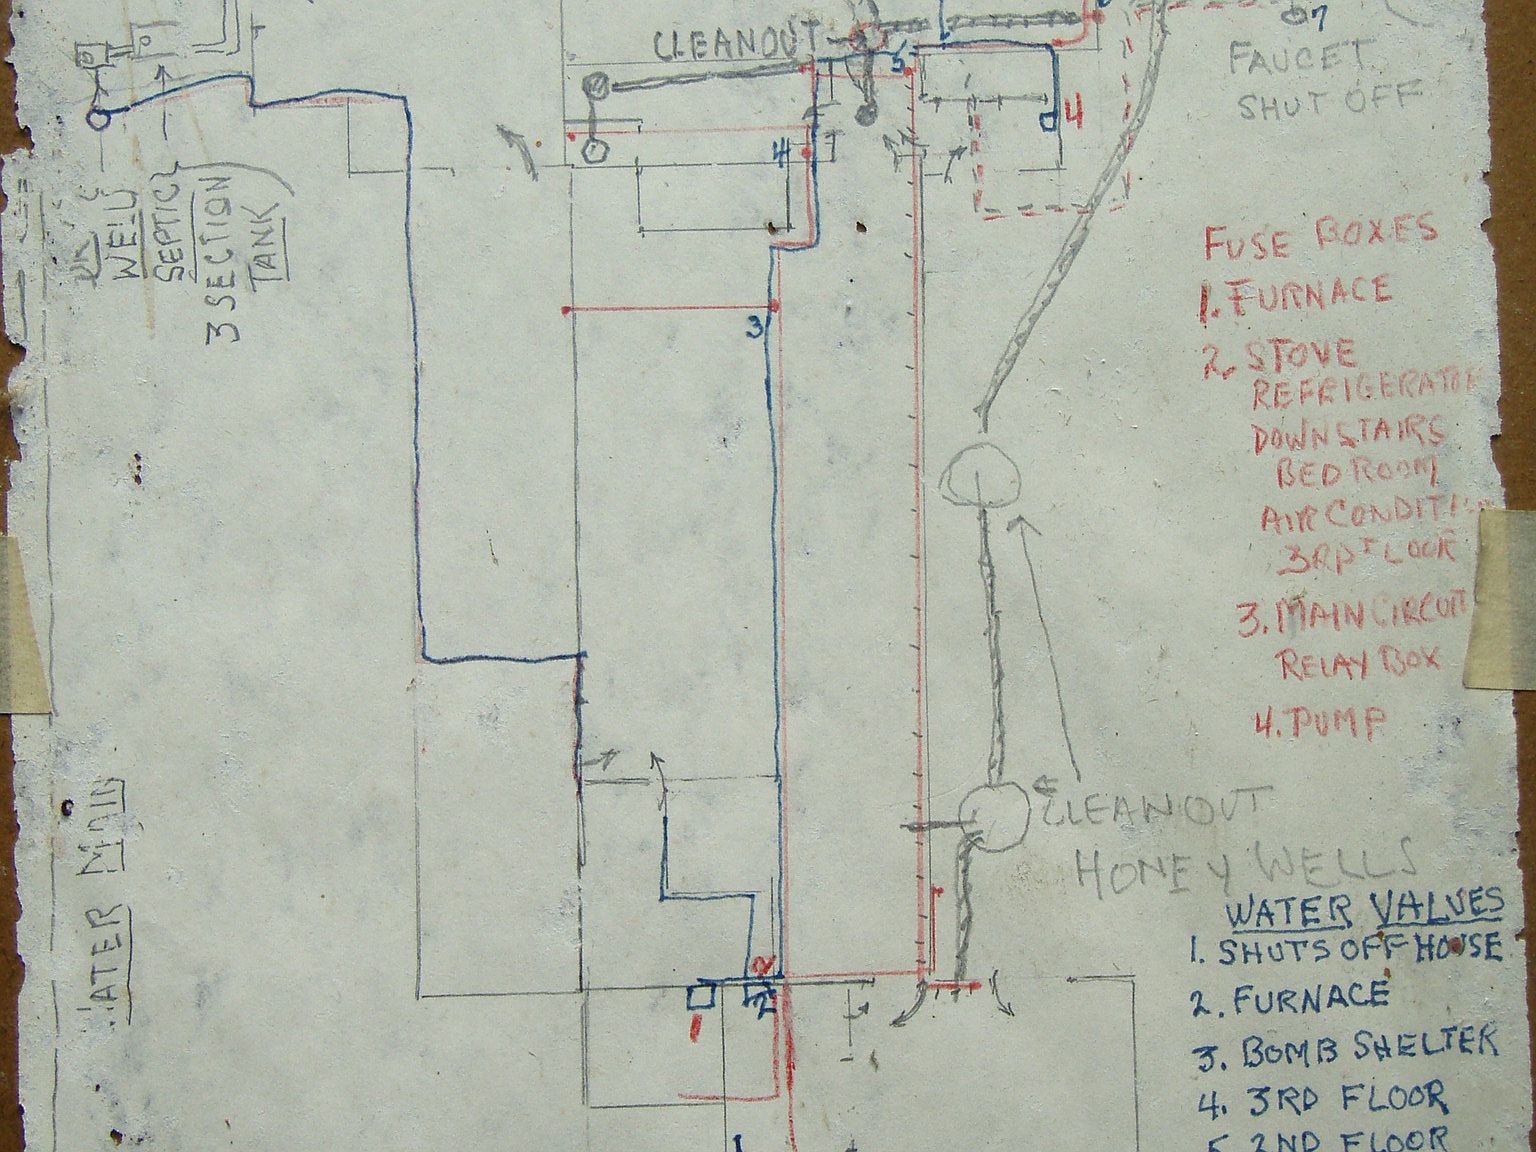 CLEANOUT
5
7
FAUCET
SHUT OFF
4
4
WELL
SEPTIC
3 SECTION
TANK
3
FUSE BOXES
1. FURNACE
2. STOVE
REFRIGERATOR
DOWNSTAIRS
BEDROOM
AIR CONDITI
3RD FLOOR
3. MAIN CIRCUIT
RELAY BOX
4. PUMP
CLEANOUT
HONEY WELLS
WATER MAIN
WATER VALVES
1. SHUTS OFF HOUSE
2. FURNACE
3. BOMB SHELTER
4. 3RD FLOOR
5. 2ND FLOOR
2
2
1
1